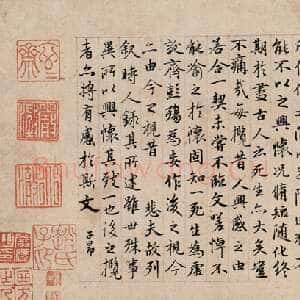 能不以之興懷況脩短隨化終
期於盡古人云死生亦大矣豈
不痛哉每攬昔人興感之由
若合一契未嘗不臨文嗟悼不
能喻之於懷固知一死生為虛
誕齊彭殤為妄作後之視今
亦由今之視昔 悲夫故列
叙時人錄其所述雖世殊事
異所以興懷其致一也後之攬
者亦將有感於斯文
子昂
趙氏子昂